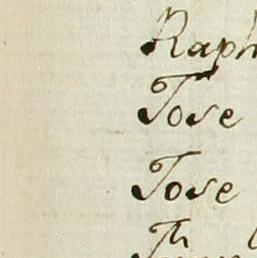 Raph
Jose
Jose